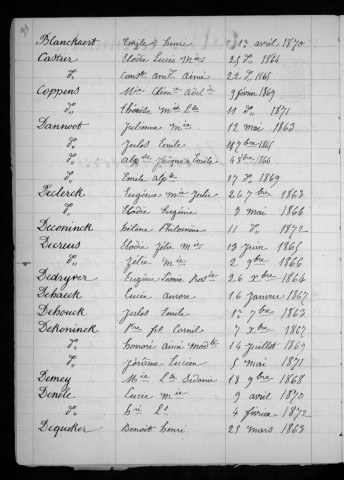 Blanckaert Emile henri 1r avril 1870
Castier Elodie Lucie Mie 25 do 1864
do Const. amd. aimé 22 do 1865
Coppens Mie Clém. Adel. 9 février 1869
do thérèse mie Lse 11 do 1871
Danwoot Julienne mie 12 mai 1863
do Jules Emile 18 7bre 1865
do alphse Jérôme Emile 4 8bre 1866
do Emile alphse 17 do 1869
Declerck Eugénie mie Julie 26 7bre 1863
do Elodie Eugénie 3 mai 1866
Deconinck hélène Philomène 11 do 1872
Decreus Elodie Zélie mie 13 Juin 1865
do Zélie mie 2 9bre 1866
Dedryver Eugène Léonie 26 xbre 1864
Dehaeck Lucie aurore 16 Janvier 1867
Dehouck Jules Emile 1r 7bre 1863
Dekoninck Pierre fd Cornil 7 xbre 1867
do honoré aimé modte 14 Juillet 1869
do Jérôme Lucien 5 mai 1871
Demey Mie Lse Sidonie 18 9bre 1868
Denele Lucie mie 9 avril 1870
do hri Ls 4 février 1872
Dequeker Benoit henri 25 mars 1863